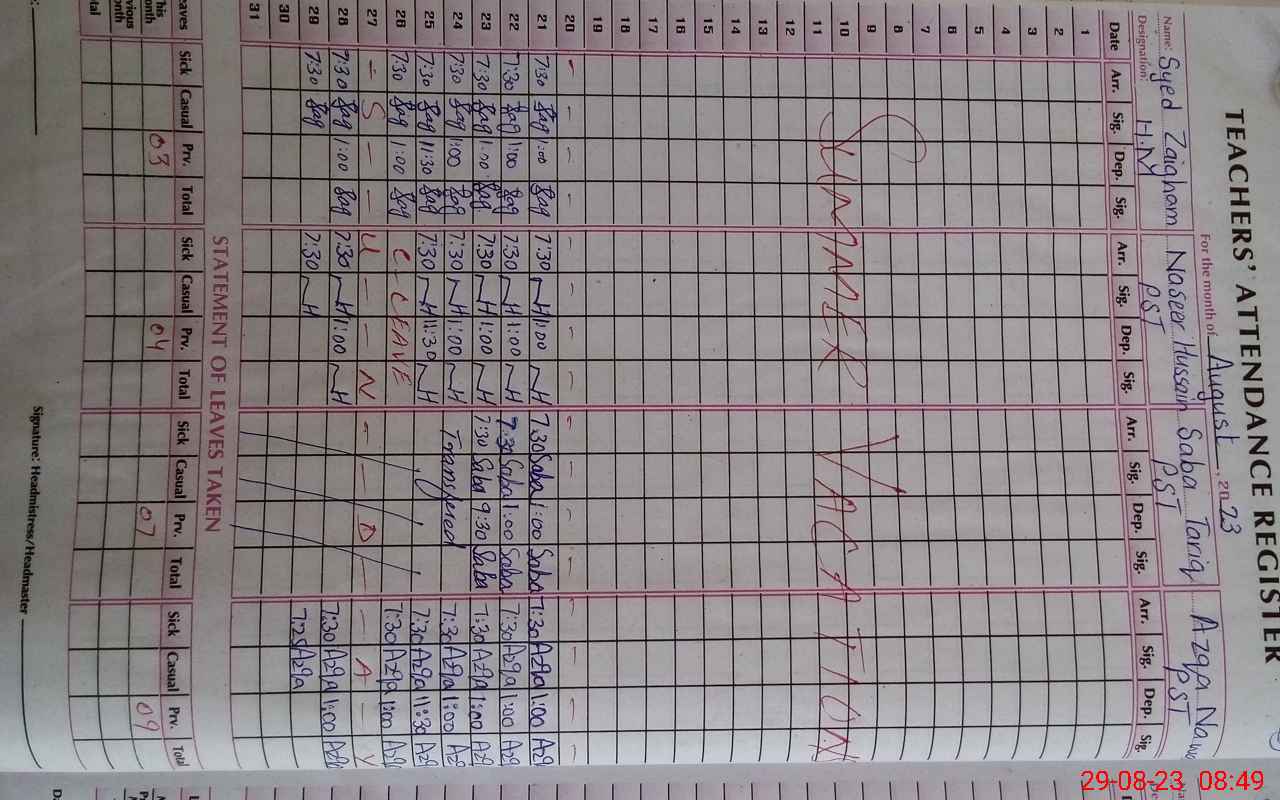 TEACHERS' ATTENDANCE REGISTER
For the month of August, 2023
Name: Syed Zaigham Naseer Hussain Saba Tariq Azqa
Designation: PST PST PST
Date Arr. Sig. Dep. Sig. Arr. Sig. Dep. Sig. Arr. Sig. Dep. Sig. Arr. Sig. Dep. Sig.
1
2
3
4
5
6
7
8
9
10 SUMMER VACATION
11
12
13
14
15
16
17
18
19
20 - - - - - - - - - - - - - - - -
21 7:30 1:00 7:30 1:00 7:30 Saba 1:00 Saba 7:30 Azqa 1:00
22 7:30 1:00 7:30 1:00 7:30 Saba 1:00 Saba 7:30 Azqa 1:00
23 7:30 1:00 7:30 1:00 7:30 Saba 9:30 Saba 7:30 Azqa 1:00
24 7:30 1:00 7:30 1:00 Transfered 7:30 Azqa 1:00
25 7:30 11:30 7:30 11:30 7:30 Azqa 11:30
26 7:30 1:00 C-LEAVE 7:30 Azqa 1:00
27 - S - - U - - N - - D - - A - Y
28 7:30 1:00 7:30 1:00 7:30 Azqa 1:00
29 7:30 7:30 7:25 Azqa
30
31
STATEMENT OF LEAVES TAKEN
Sick Casual Prv. Total Sick Casual Prv. Total Sick Casual Prv. Total Sick Casual Prv. Total
03 04 07 09
Signature: Headmistress/Headmaster
29-08-23 08:49